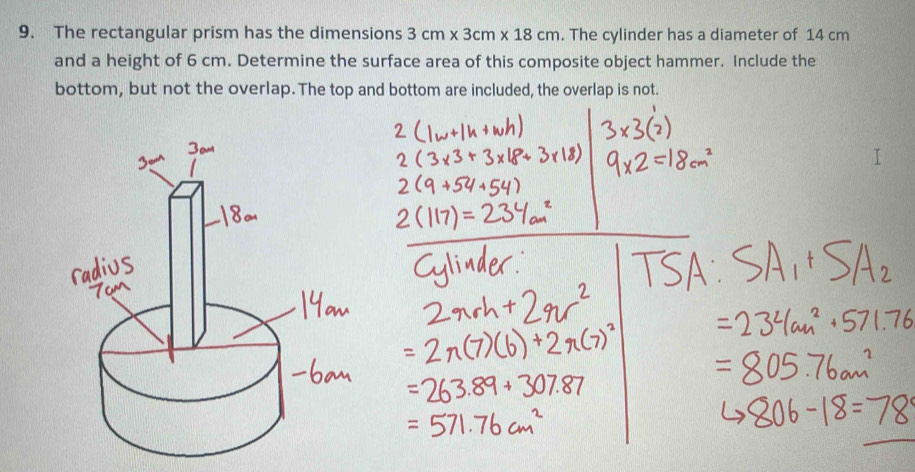 9. The rectangular prism has the dimensions 3 cm x 3cm x 18 cm. The cylinder has a diameter of 14 cm
and a height of 6 cm. Determine the surface area of this composite object hammer. Include the
bottom, but not the overlap. The top and bottom are included, the overlap is not.
3cm
3cm
-18cm
radius
7cm
14cm
-6cm
2(lw+lh+wh)
2(3×3+3×18+3×18)
2(9+54+54)
2(117)=234cm²
3×3(2)
9×2=18cm²
Cylinder:
2πrh+2πr²
=2π(7)(6)+2π(7)²
=263.89+307.87
=571.76cm²
TSA: SA₁+SA₂
=234cm²+571.76
=805.76cm²
↳806-18=78